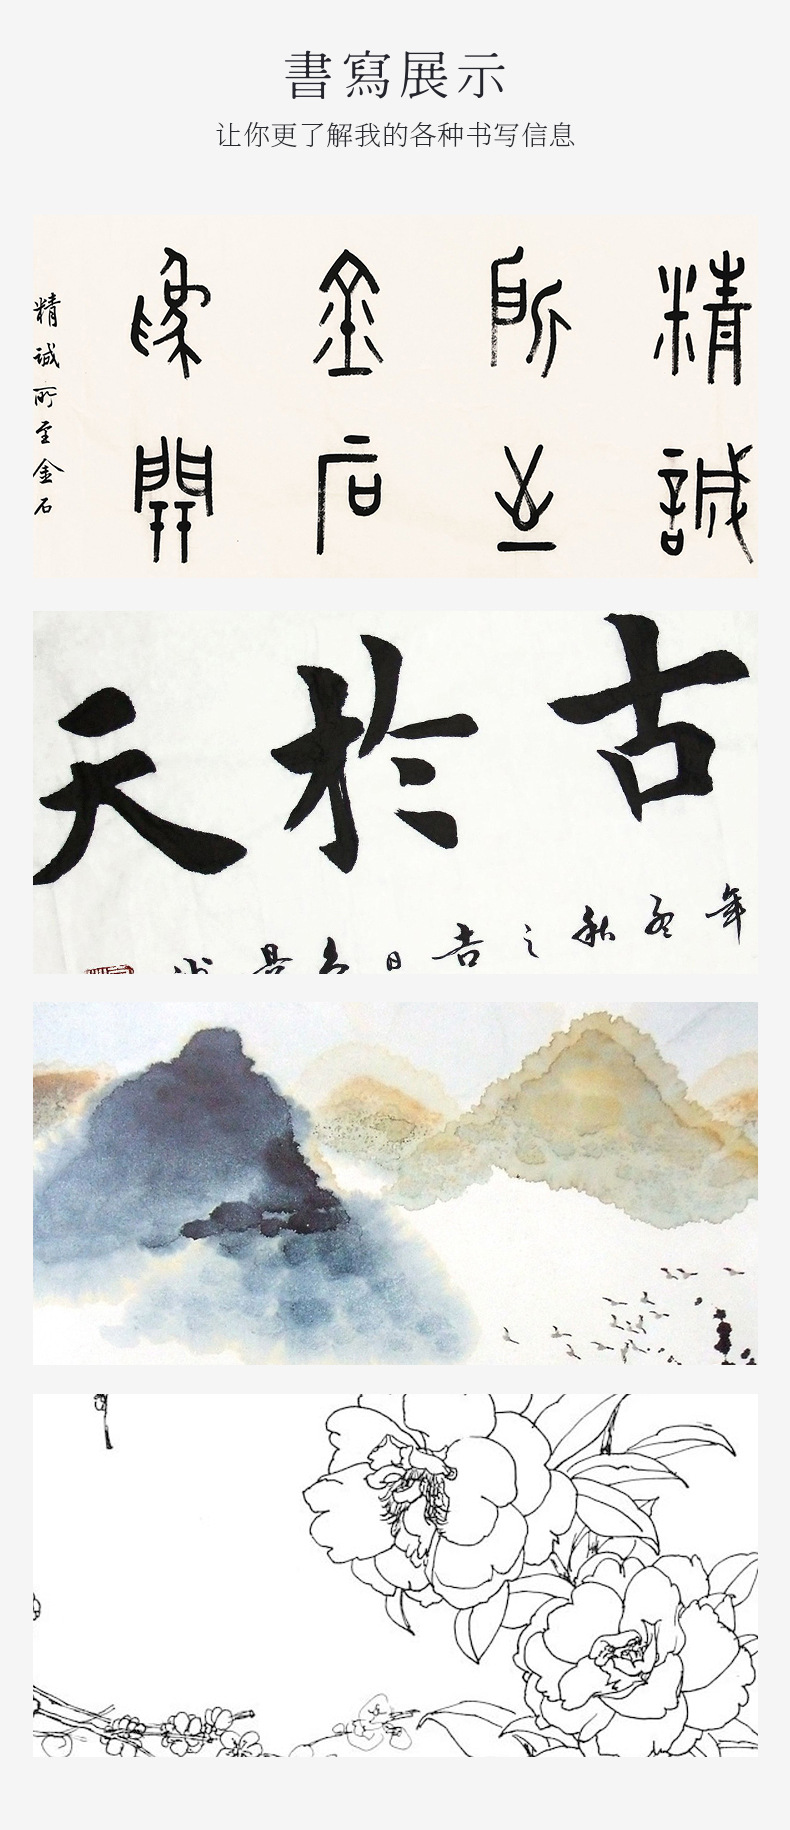 書寫展示
让你更了解我的各种书写信息
精誠
所至
金石
為開
精誠所至金石
古於天
年 秋之吉日